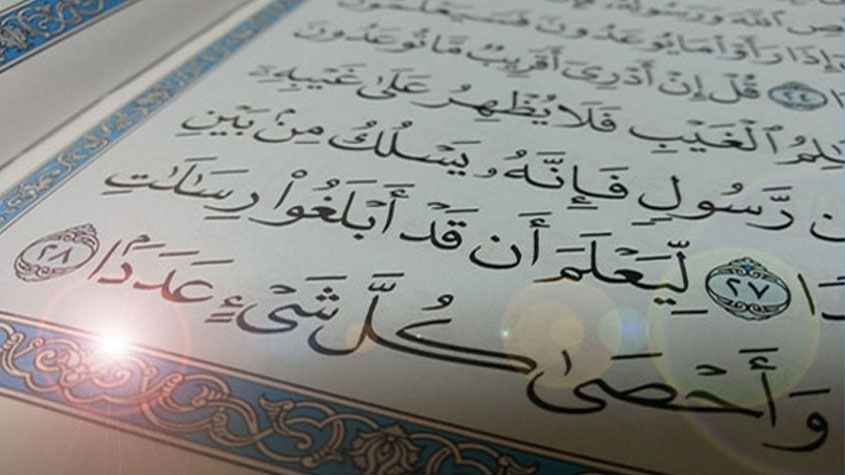 ٱللَّهَ وَرَسُولَهُۥ
إِذَا رَأَوْا۟ مَا يُوعَدُونَ فَسَيَعْلَمُونَ
٢٤ قُلْ إِنْ أَدْرِىٓ أَقَرِيبٌ مَّا تُوعَدُونَ
ـٰلِمُ ٱلْغَيْبِ فَلَا يُظْهِرُ عَلَىٰ غَيْبِهِۦٓ
ن رَّسُولٍ فَإِنَّهُۥ يَسْلُكُ مِنۢ بَيْنِ
دًا ٢٧ لِّيَعْلَمَ أَن قَدْ أَبْلَغُوا۟ رِسَـٰلَـٰتِ
وَأَحْصَىٰ كُلَّ شَىْءٍ عَدَدًۢا ٢٨